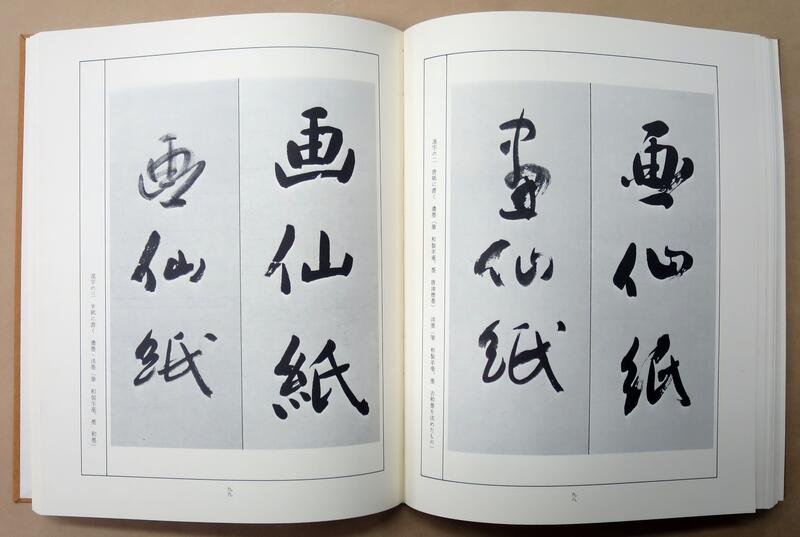 画仙紙
畫仙紙
漢字の二 唐紙に書く 濃墨(筆 和製羊毫、墨 唐油煙墨) 淡墨(筆 和製羊毫、墨 古松墨を淡めたもの)
九八
画仙紙
画仙紙
漢字の三 半紙に書く 濃墨・淡墨(筆 和製羊毫、墨 和墨)
九九